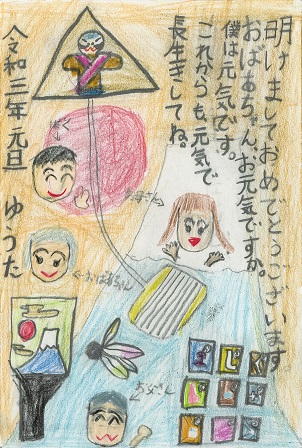 明けましておめでとうございます
おばあちゃん、お元気ですか。
僕は元気です。
これからも、元気で
長生きしてね。
令和三年元旦　ゆうた
ぼく
お母さん
おばあちゃん
お父さん